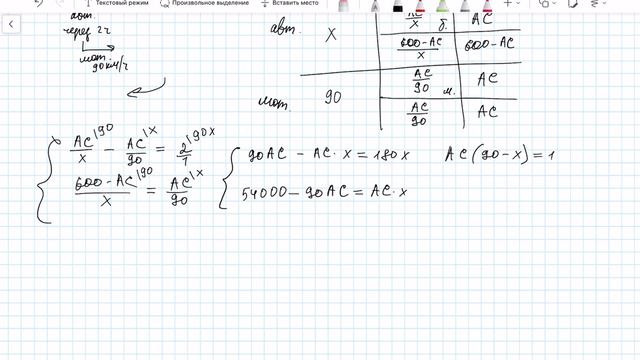 Текстовый режим Произвольное выделение Вставить место
авт.
через 2 ч
мот.
90 км/ч
авт. x AC/x б. AC
600-AC/x 600-AC
мот. 90 AC/90 м. AC
AC/90 AC
AC/x |90 - AC/90 |x = 2/1 |90x
600-AC/x |90 = AC/90 |x
90AC - AC·x = 180x AC(90-x)=1
54000 - 90AC = AC·x